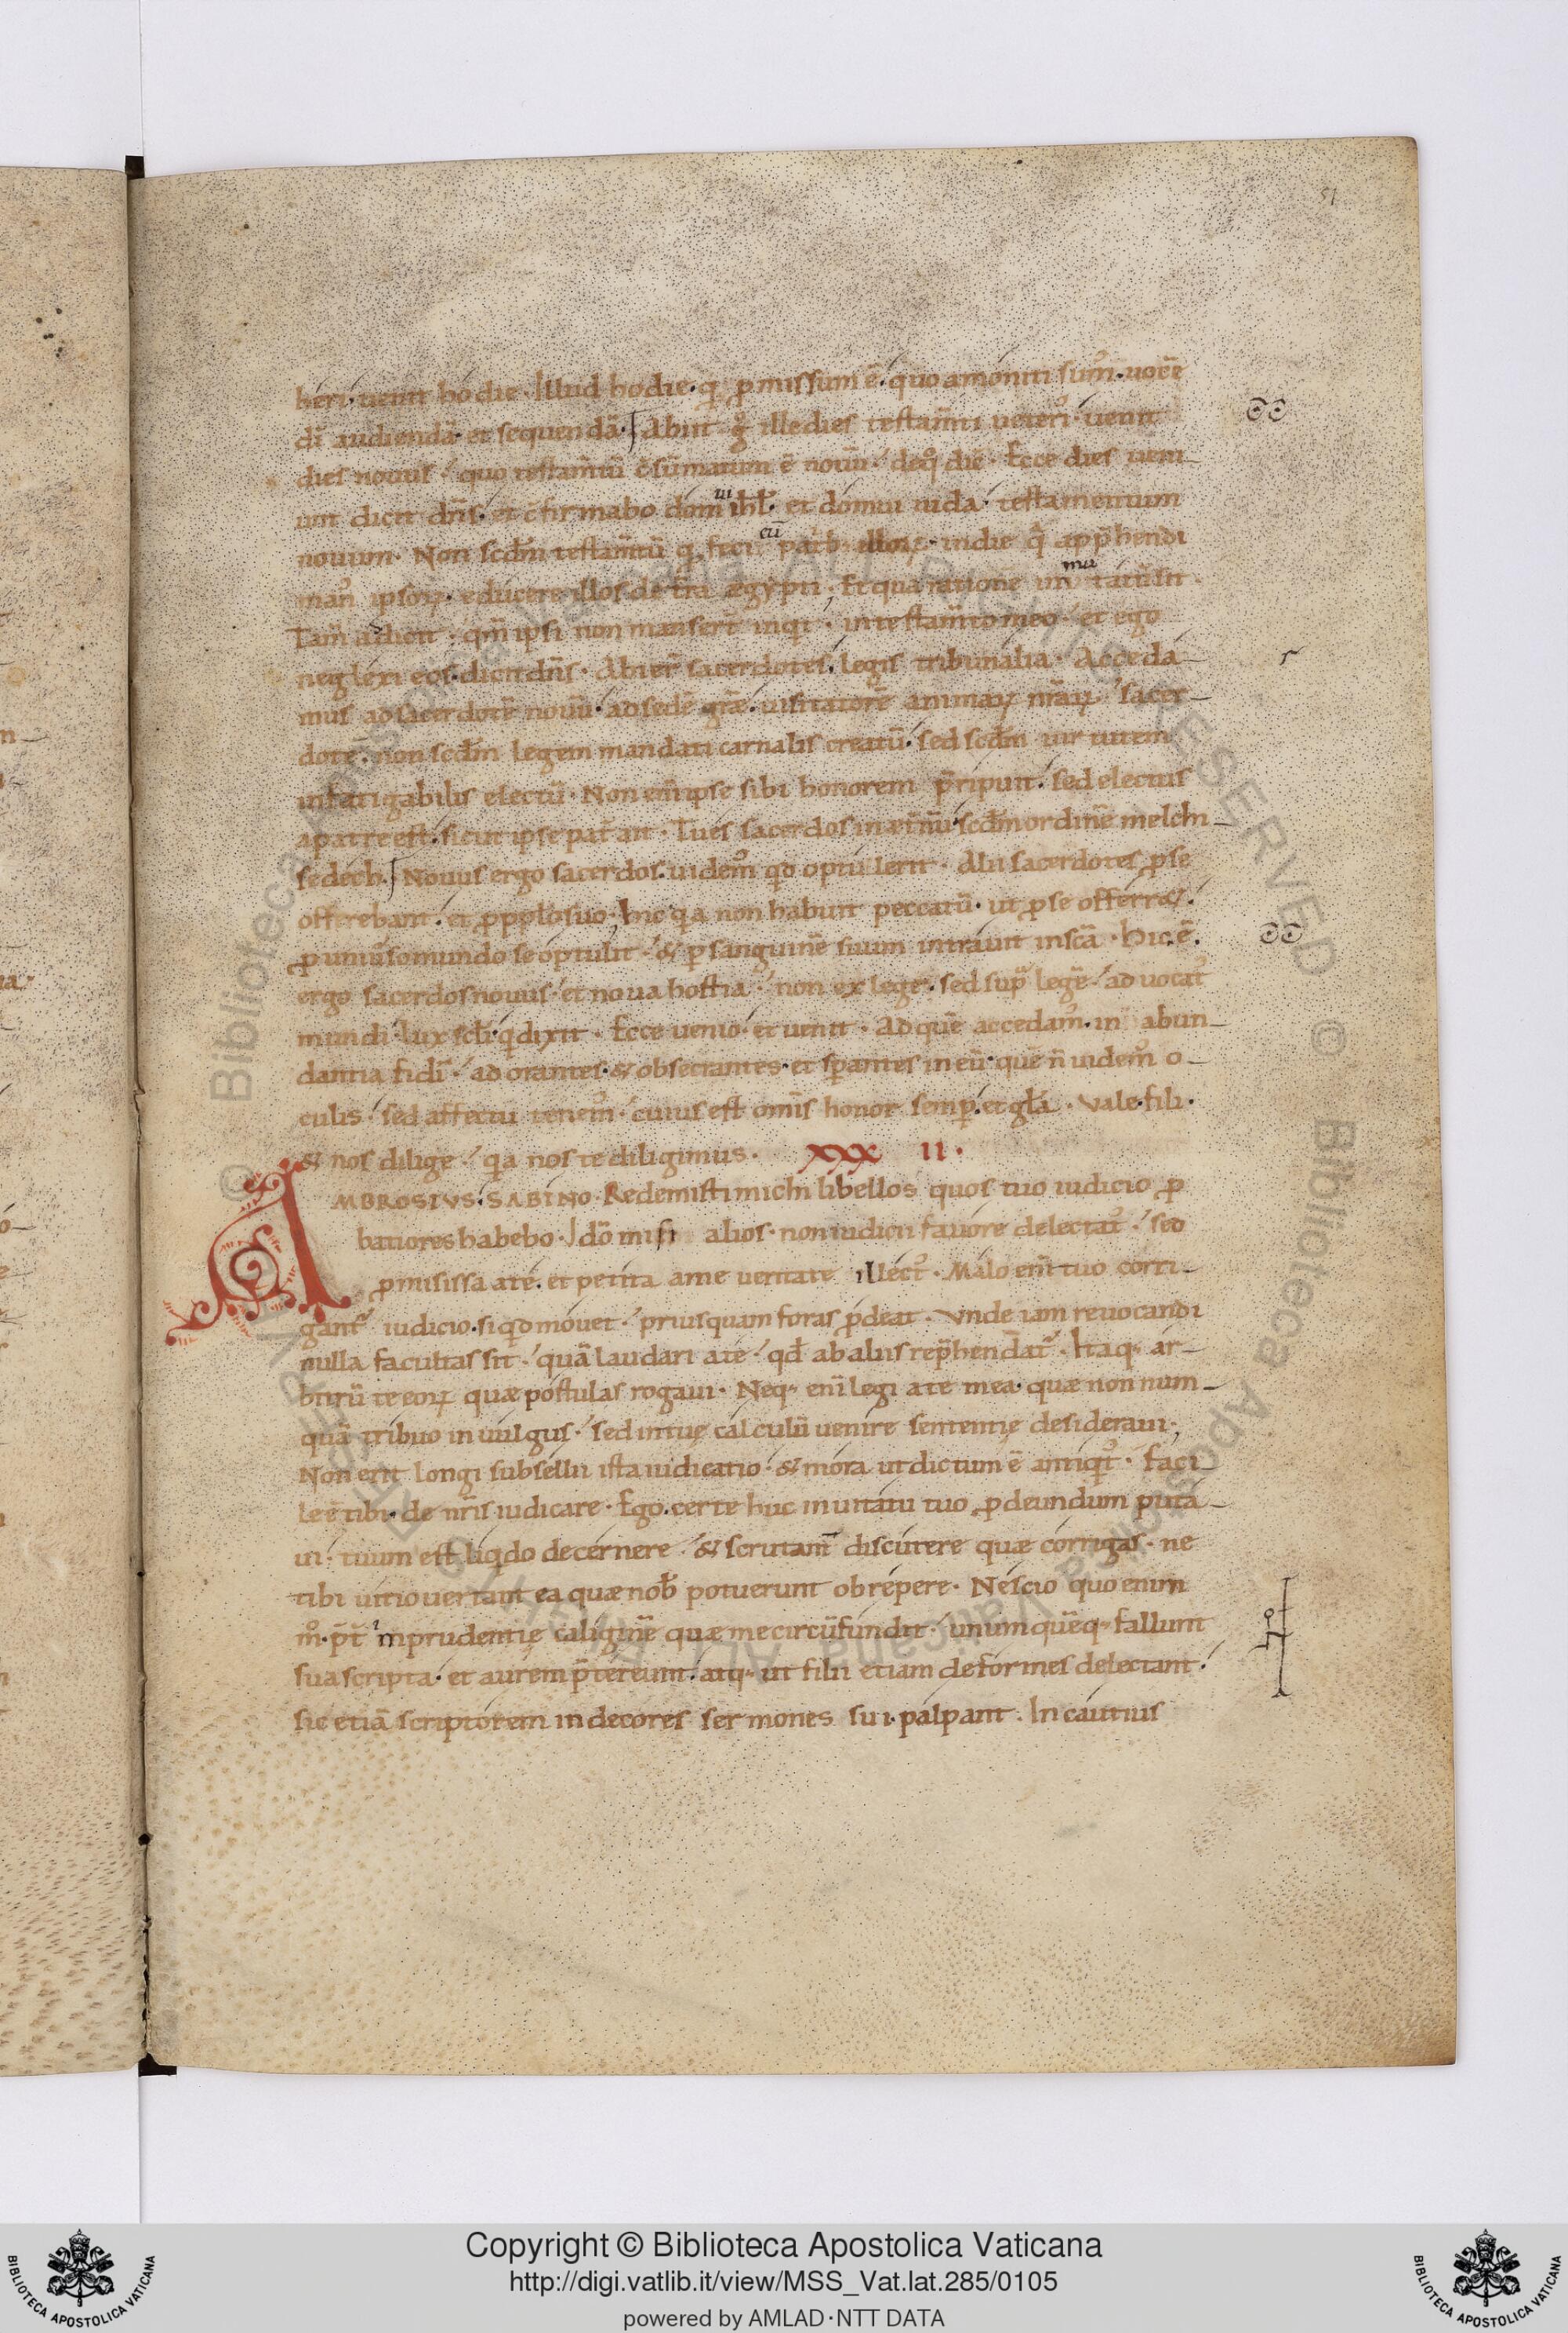 51
heri· uenit hodie· Illud hodie· q̨ ꝓmissum ē· quo amoniti sum᷒· uocē
dī audiendā· et sequendā· Abiit g̊ ille dies testam̄ti ueteri᷒· uenit
dies nouus· quo testam̄tū c̄sūmatum ē nouū· de q̊ dic̄· Ecce dies ueni-
unt dicit dn̄s· et c̄firmabo domui ihl̄· et domui iuda· testamentum
nouum· Non scd̄m testam̄tū q̨ feci cū patrib· illoꝝ· in die q̄ app̄hendi
man᷒ ipsoꝝ· educere illos de t̄ra ægypti· Et qua ratione inmutatū sit·
Tam̄ adicit· qm̄ ipsi non manser̄ inqi᷒t· in testam̄to meo· et ego
neglexi eos· dicit dn̄s· Abier̄ sacerdotes· legis tribunalia· Acceda-
mus ad sacerdotē nouū· ad sedē grā̄e· uisitatorē animaꝝ nr̄aꝝ· sacer-
dotē· non scd̄m legem mandati carnalis creatū· sed scd̄m uirtutem
infatigabilis electū· Non em̄ ipse sibi honorem p̄ripuit· sed electus
a patre est· sicut ipse pat̄ ait· Tu es sacerdos in æt̄nū· scd̄m ordinē melchi-
sedech· Nouus ergo sacerdos· uidem᷒ qd optulerit· Alii sacerdotes ꝓ se
offerebant· et ꝓ pplo suo· hic qa non habuit peccatū· ut ꝓ se offerr&·
ꝓ uniuso mundo se optulit· & ꝑ sanguinē suum intrauit in scā· Hic ē·
ergo sacerdos nouus· et noua hostia· non ex lege· sed sup̄ legē· aduocat᷒
mundi· lux scl̄i· q dixit· Ecce uenio· et uenit· Ad quē accedam᷒· in abun-
dantia fidī· adorantes· & obsecrantes· et sꝑantes in eū· quē n̄ uidem᷒ o-
culis· sed affectu tenem᷒· cuius est om̄is honor semꝑ· et gl̄a· Vale fili·
& nos dilige· qa nos te diligimus· XXX II·
AMBROSIVS· SABINO· Redemisti michi libellos quos tuo iudicio ꝓ
batiores habebo· Idō misi alios· non iudicii fauore delectat᷒· sed
ꝓmissa a te· et petita a me ueritate illect᷒· Malo em̄ tuo corri-
gant᷒ iudicio· si qd mouet· priusquam foras ꝓdeat· Vnde iam reuocandi
nulla facultas sit· quā laudari a te· qd̄ ab aliis rep̄hendat᷒· Itaq· ar-
bitrū te eoꝝ quæ postulas rogaui· Neq· enī legi a te mea· quæ non num-
quā tribuo in uulgus· sed in tuę calculū uenire sententię desideraui·
Non erit longi subsellii ista iudicatio· & mora ut dictum ē antiqit᷒· Faci-
le ē tibi de nr̄is iudicare· Ego certe huc inuitatu tuo ꝓdeundum puta-
ui· tuum est liqdo decernere & scrutam̄ discutere quæ corrigas· ne
tibi uitio uertant ea quæ nob̄ potuerunt obrepere· Nescio quo enim
m̊· p̄t̄ inprudentię caliginē quæ me circūfundit· unum quēq· fallunt
sua scripta· et aurem p̄tereunt· atq· ut filii etiam deformes delectant·
sic etiā scriptorem indecores sermones sui palpant· Incautius
Copyright © Biblioteca Apostolica Vaticana
http://digi.vatlib.it/view/MSS_Vat.lat.285/0105
powered by AMLAD·NTT DATA